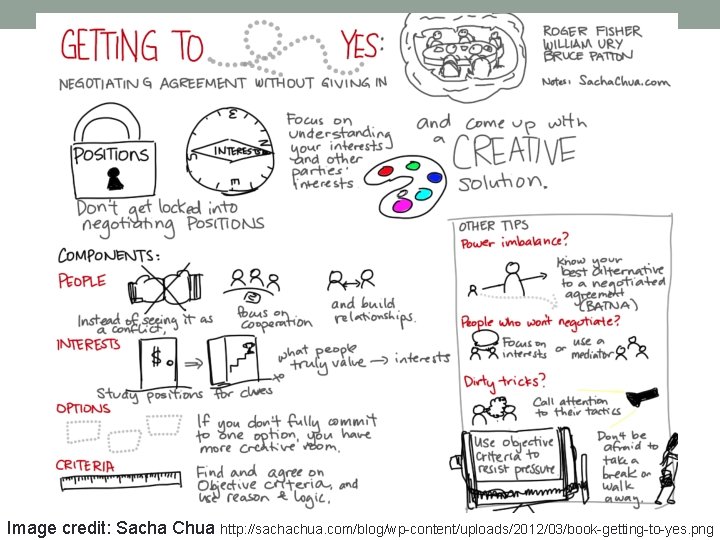 GETTING TO YES:
NEGOTIATING AGREEMENT WITHOUT GIVING IN
ROGER FISHER
WILLIAM URY
BRUCE PATTON
Notes: SachaChua.com
POSITIONS
Don't get locked into
negotiating POSITIONS
N
INTERESTS
S
E
Focus on
understanding
your interests
and other
parties'
interests
and come up with
a CREATIVE
solution.
COMPONENTS:
PEOPLE
Instead of seeing it as
a conflict,
focus on
cooperation
and build
relationships.
INTERESTS
$
what people
truly value → interests
Study positions for clues
OPTIONS
If you don't fully commit
to one option, you have
more creative room.
CRITERIA
Find and agree on
Objective criteria, and
use reason & logic.
OTHER TIPS
Power imbalance?
Know your
best alternative
to a negotiated
agreement
(BATNA)
People who won't negotiate?
Focus on
interests
or
use a
mediator
Dirty tricks?
Call attention
to their tactics
Use objective
criteria to
resist pressure
Don't be
afraid to
take a
break or
walk
away.
Image credit: Sacha Chua http://sachachua.com/blog/wp-content/uploads/2012/03/book-getting-to-yes.png